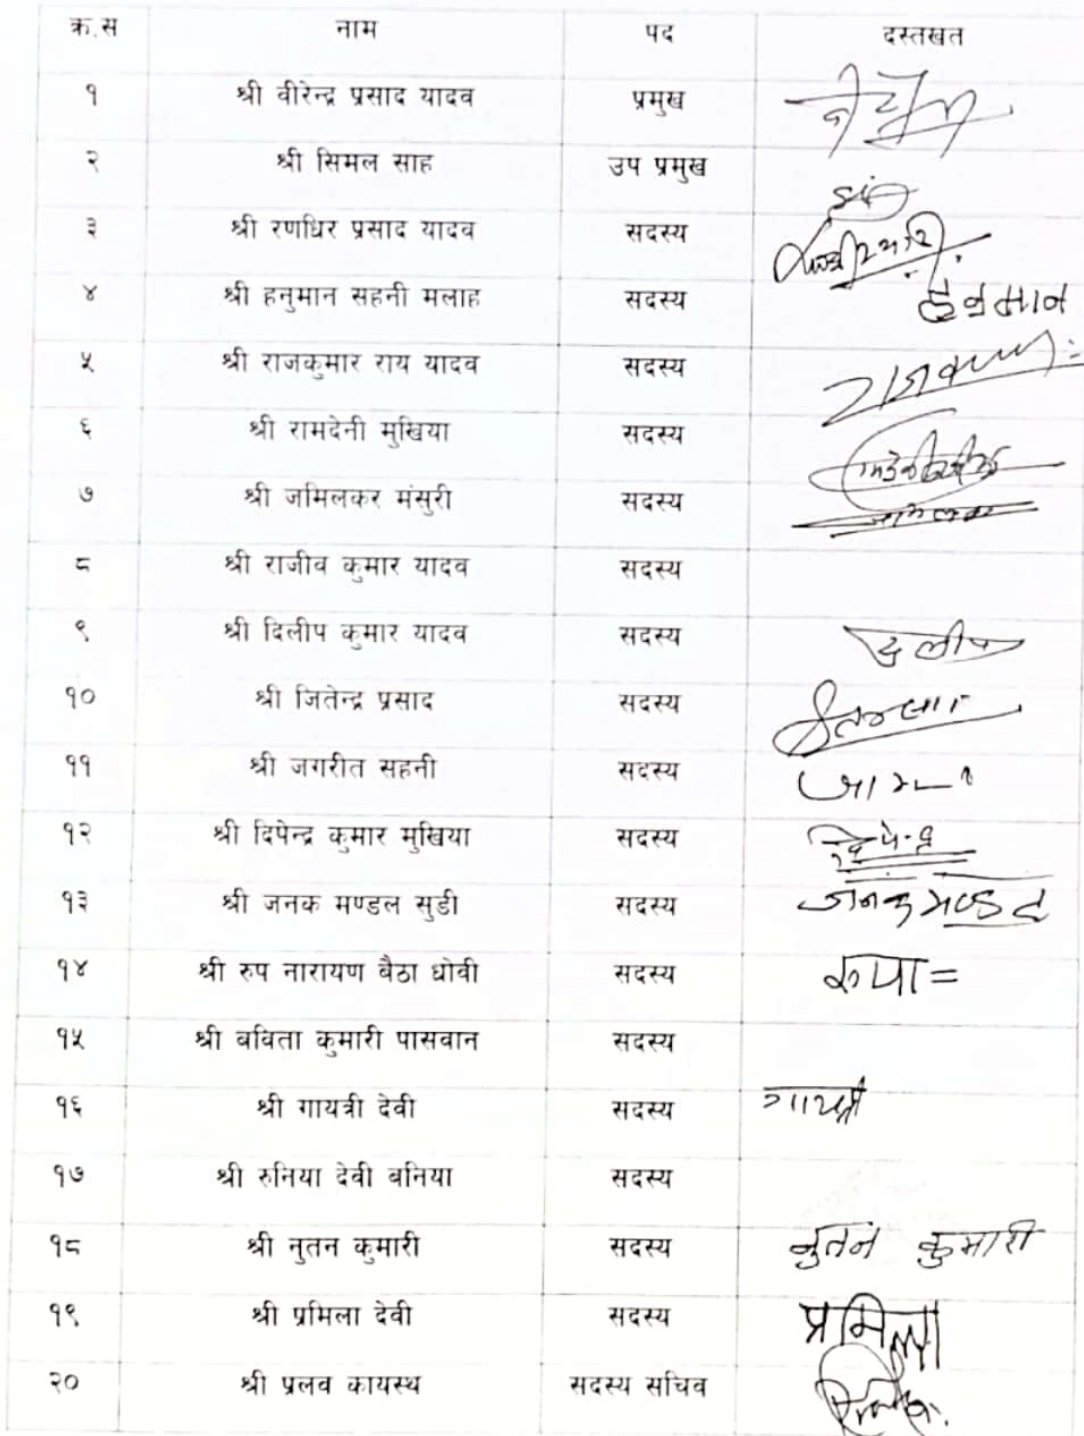 क्र.स नाम पद दस्तखत
१ श्री वीरेन्द्र प्रसाद यादव प्रमुख
२ श्री सिमल साह उप प्रमुख
३ श्री रणधिर प्रसाद यादव सदस्य
४ श्री हनुमान सहनी मलाह सदस्य हनुमान
५ श्री राजकुमार राय यादव सदस्य
६ श्री रामदेनी मुखिया सदस्य
७ श्री जमिलकर मंसुरी सदस्य
८ श्री राजीव कुमार यादव सदस्य
९ श्री दिलीप कुमार यादव सदस्य
१० श्री जितेन्द्र प्रसाद सदस्य
११ श्री जगरीत सहनी सदस्य
१२ श्री दिपेन्द्र कुमार मुखिया सदस्य दिपेन्द्र
१३ श्री जनक मण्डल सुडी सदस्य जनक मण्डल
१४ श्री रुप नारायण बैठा धोवी सदस्य रुपा =
१५ श्री बविता कुमारी पासवान सदस्य
१६ श्री गायत्री देवी सदस्य गायत्री
१७ श्री रुनिया देवी बनिया सदस्य
१८ श्री नुतन कुमारी सदस्य नुतन कुमारी
१९ श्री प्रमिला देवी सदस्य प्रमिला
२० श्री प्रलव कायस्थ सदस्य सचिव